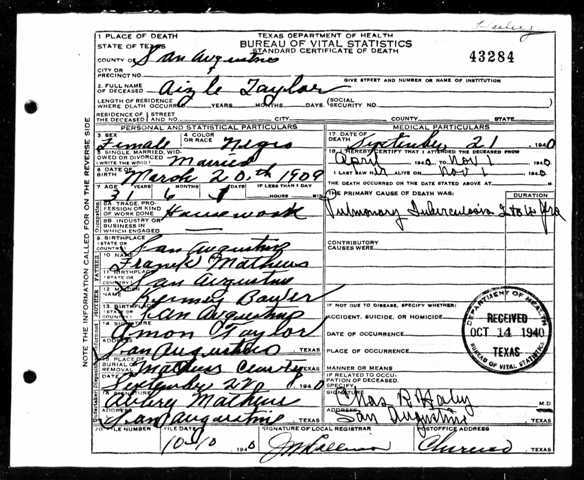 1 PLACE OF DEATH
STATE OF TEXAS
TEXAS DEPARTMENT OF HEALTH
BUREAU OF VITAL STATISTICS
STANDARD CERTIFICATE OF DEATH
43284
COUNTY OF San Augustine
CITY OR PRECINCT NO. 1
GIVE STREET AND NUMBER OR NAME OF INSTITUTION
2. FULL NAME OF DECEASED Aizle Taylor
LENGTH OF RESIDENCE WHERE DEATH OCCURRED YEARS MONTHS DAYS (SOCIAL SECURITY NO.
RESIDENCE OF THE DECEASED STREET AND NO. CITY COUNTY STATE
PERSONAL AND STATISTICAL PARTICULARS
3. SEX Female
4. COLOR OR RACE Negro
5. SINGLE, MARRIED, WIDOWED OR DIVORCED (WRITE THE WORD) Married
6. DATE OF BIRTH March 20th 1909
7. AGE 31 6 1 IF LESS THAN 1 DAY HOURS MIN
8A. TRADE, PROFESSION OR KIND OF WORK DONE Housework
8B. INDUSTRY OR BUSINESS IN WHICH ENGAGED
9. BIRTHPLACE (STATE OR COUNTRY) San Augustine
10. NAME Frank Mathews
11. BIRTHPLACE (STATE OR COUNTRY) San Augustine
12. MAIDEN NAME
13. BIRTHPLACE San Augustine
14. SIGNATURE Amon Taylor
ADDRESS San Augustine TEXAS
15. PLACE OF BURIAL OR REMOVAL Mathews
September 22 1940
Autrey Mathews
ADDRESS San Augustine TEXAS
MEDICAL PARTICULARS
17. DATE OF DEATH September 21 1940
18. I HEREBY CERTIFY THAT I ATTENDED THE DECEASED FROM
April 1940 TO Nov 1 1940
I LAST SAW H ALIVE ON Nov 1 1940
THE DEATH OCCURRED ON THE DATE STATED ABOVE AT M.
THE PRIMARY CAUSE OF DEATH WAS:
DURATION
Pulmonary Tuberculosis
CONTRIBUTORY CAUSES WERE:
IF NOT DUE TO DISEASE, SPECIFY WHETHER:
ACCIDENT, SUICIDE, OR HOMICIDE
DATE OF OCCURRENCE
PLACE OF OCCURRENCE
MANNER OR MEANS
IF RELATED TO OCCUPATION OF DECEASED, SPECIFY
SIGNATURE Chas R Haley M.D.
ADDRESS San Augustine TEXAS
DEPARTMENT OF HEALTH
RECEIVED
OCT 14 1940
TEXAS
BUREAU OF VITAL STATISTICS
FILE NUMBER
FILE DATE 10-10 1940
SIGNATURE OF LOCAL REGISTRAR
POSTOFFICE ADDRESS
TEXAS
NOTE THE INFORMATION CALLED FOR ON THE REVERSE SIDE